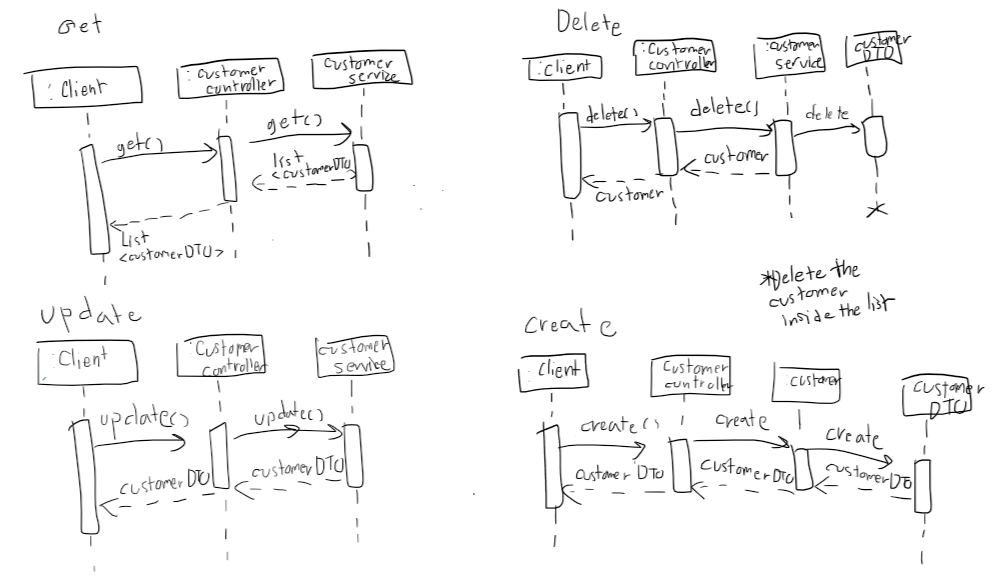 Get
: Client
: Customer
controller
Customer
service
get()
get()
List
<customerDTO
List
<customerDTO>
Delete
: client
: Customer
controller
: customer
service
customer
DTO
delete()
delete()
delete
customer
customer
*Delete the
customer
inside the list
Update
: Client
: Customer
controller
customer
service
update()
update()
customer DTO
customer DTO
Create
: Client
Customer
controller
: customer
customer
DTO
create()
create
create
customer DTO
customer DTO
customer DTO